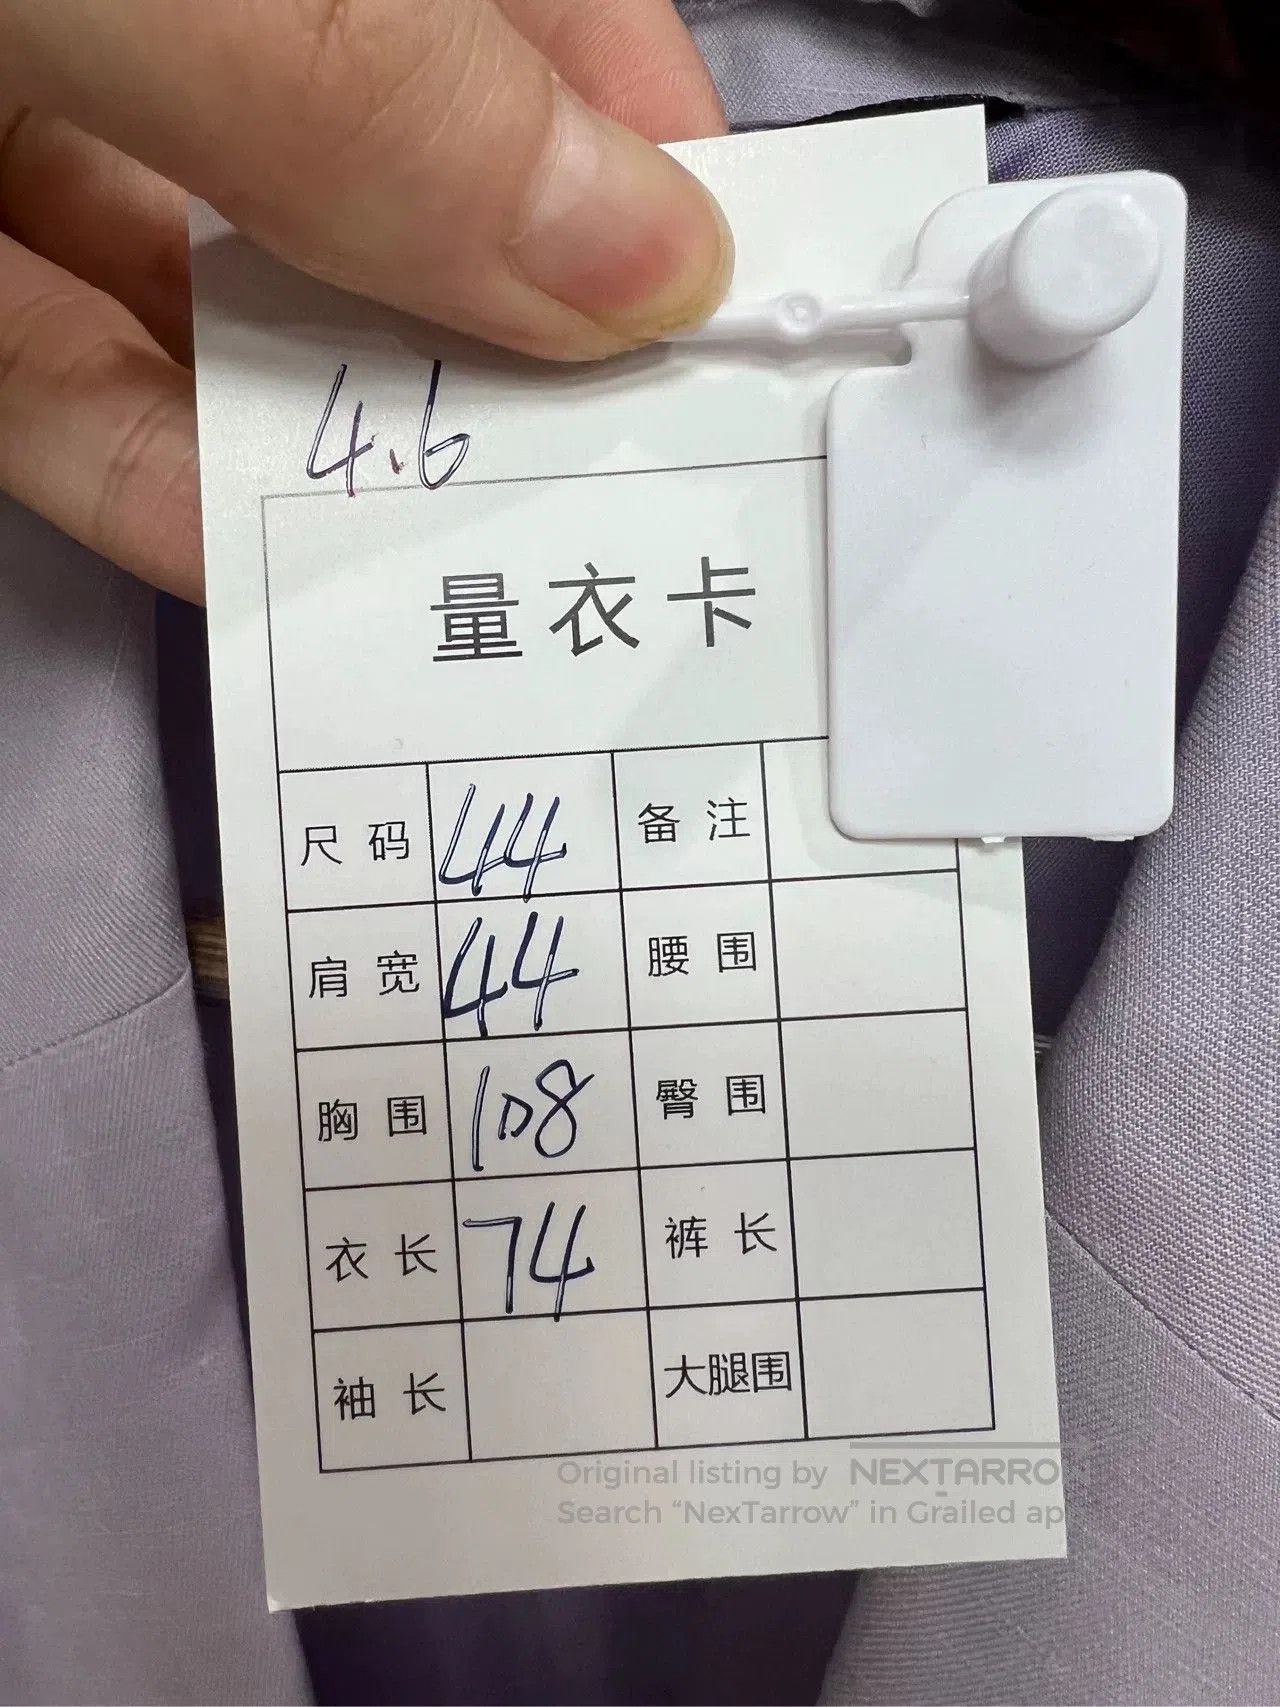 4.6
量衣卡
尺码 44 备注
肩宽 44 腰围
胸围 108 臀围
衣长 74 裤长
袖长 大腿围
Original listing by NEXTARRO
Search “NexTarrow” in Grailed ap